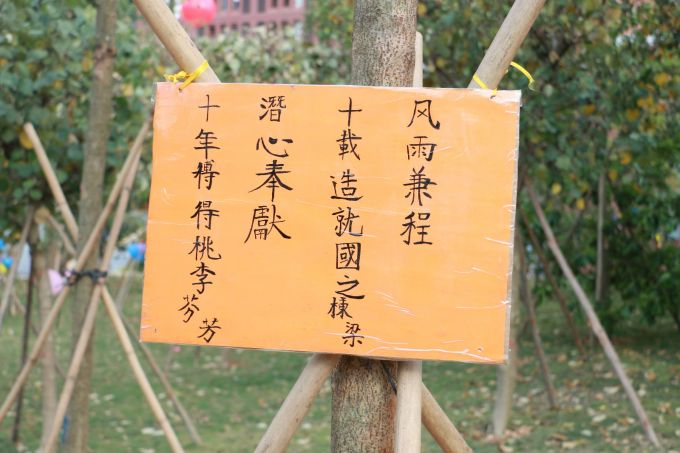 风雨兼程
十載造就國之棟梁
潛心奉獻
十年博得桃李芬芳